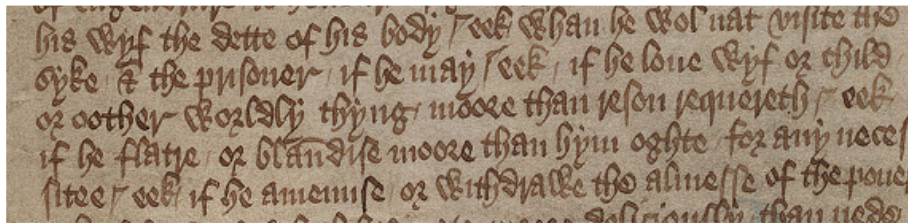 his wyf the dette of his body / eek whan he wol nat visite the
syke / & the prisoner / if he may / eek / if he loue wyf or child /
or oother worldly thyng / moore than reson requereth / eek
if he flatre / or blandise moore than hym oghte / for any neces
sitee / eek if he amenuse / or withdrawe the almesse of the poue
deliciously than